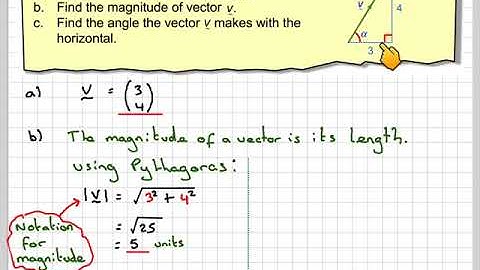 b. Find the magnitude of vector v.
c. Find the angle the vector v makes with the
horizontal.
v
4
α
3
a) v = (3
4)
b) The magnitude of a vector is its length.
using Pythagoras:
|v| = √3² + 4²
= √25
= 5 units
Notation
for
magnitude